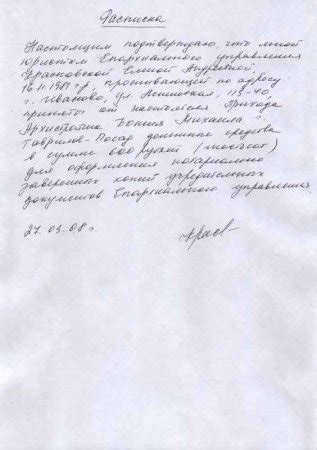 Расписка
Настоящим подтверждаю, что мной
юристом Епархиального управления
Красовской Еленой Андреевной
16.11.1981 г.р., проживающей по адресу
г. Иваново, ул. 113-40
принято от настоятеля Прихода
Архистратига Божия Михаила г.
Гаврилов-Посад денежные средства
в сумме 600 рублей (шестьсот)
для оформления нотариально
заверенных копий учредительных
документов Епархиального управления
27.03.08 г.